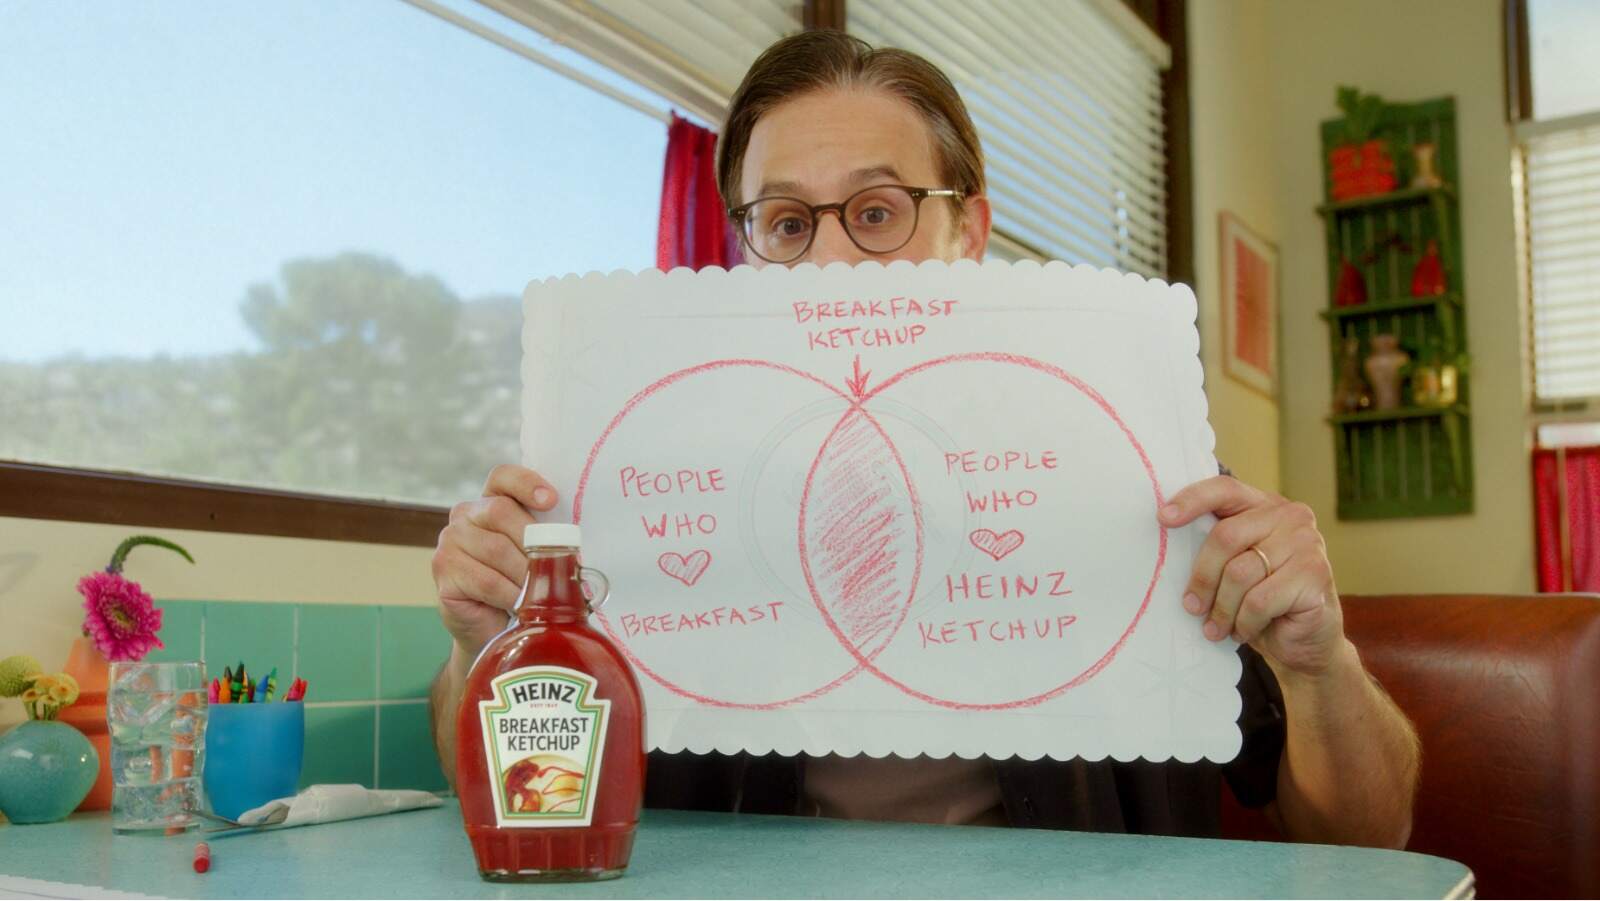 BREAKFAST
KETCHUP
PEOPLE
WHO
BREAKFAST
PEOPLE
WHO
HEINZ
KETCHUP
HEINZ
ESTD 1869
BREAKFAST
KETCHUP